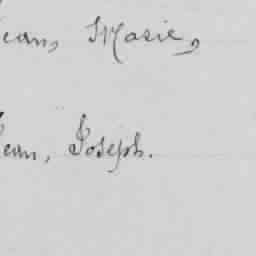 Jean, Marie,
Jean, Joseph.